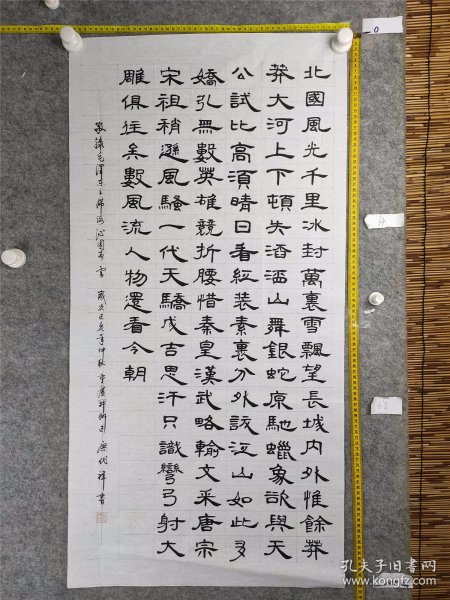 北國風光千里冰封萬裏雪飄望長城内外惟餘莽
莽大河上下頓失滔滔山舞銀蛇原馳蠟象欲與天
公試比高須晴日看紅装素裹分外該江山如此多
嬌引無數英雄競折腰惜秦皇漢武略輸文采唐宗
宋祖稍遜風騷一代天驕成吉思汗只識彎弓射大
雕俱往矣數風流人物還看今朝
敬錄毛澤東主席詞沁園春雪 歲次己亥年仲秋
祥書
孔夫子旧书网
kongfz.com